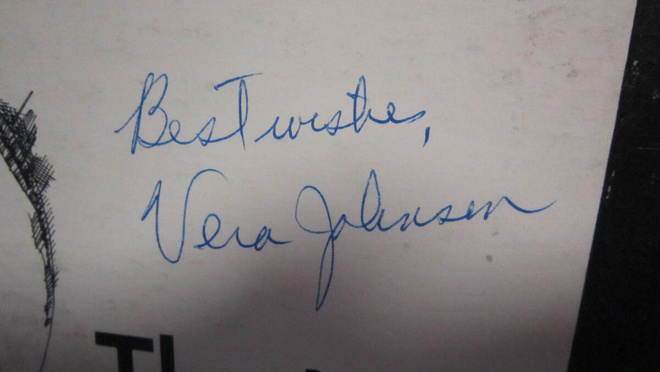 Best wishes,
Vera Johnson
Th